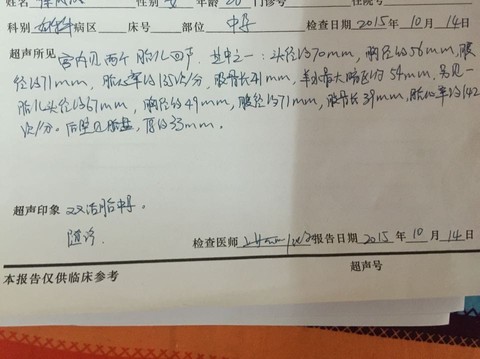 姓名 性别 女 年龄 20 门诊号 住院号
科别 妇产科 病区 床号 部位 中孕 检查日期 2015 年 10 月 14 日
超声所见 宫内见两个胎儿回声。其中之一:头径约70mm,胸径约56mm,腹
径约71mm,胎心率约135次/分,股骨长41mm,羊水最大肠区约54mm。另见一
胎儿头径约67mm,胸径约49mm,腹径约71mm,股骨长39mm,胎心率约142
次/分。后壁见胎盘,厚约33mm。
超声印象 双活胎中孕。
随诊.
检查医师 报告日期 2015 年 10 月 14 日
本报告仅供临床参考 超声号